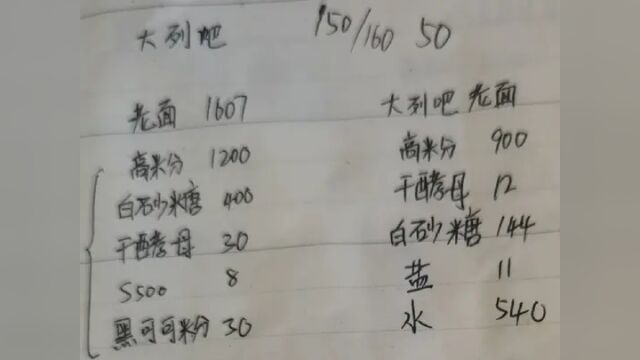 大列吧 150/160 50
老面 1607
高米分 1200
白石少米糖 400
干酵母 30
S500 8
黑可可米分 30
大列吧老面
高米分 900
干酵母 12
白石少米糖 144
盐 11
水 540